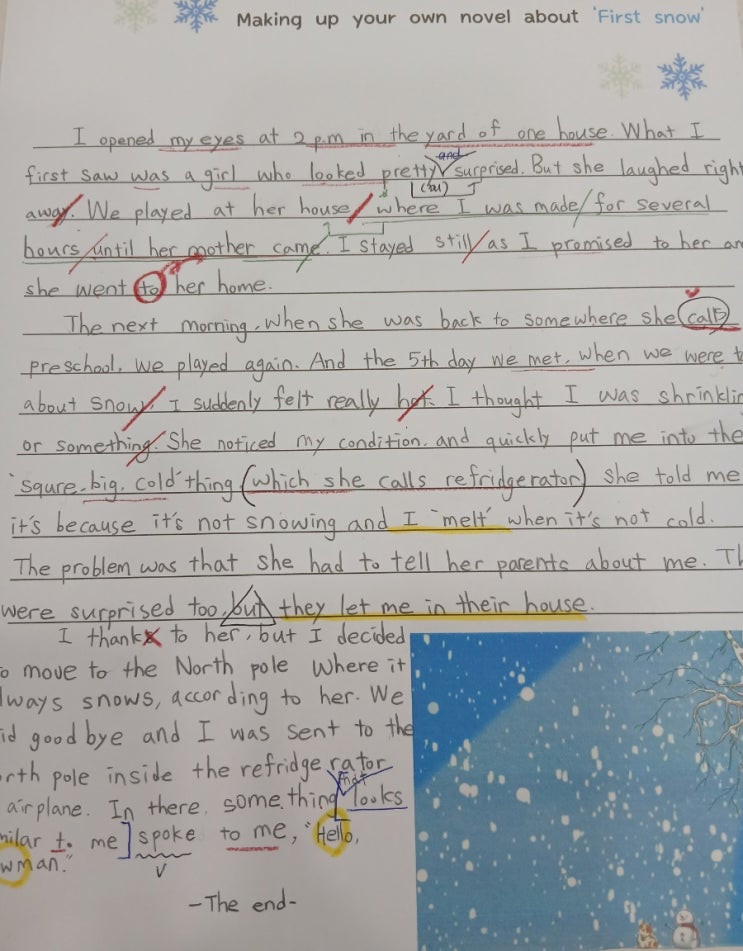 Making up your own novel about 'First snow'
I opened my eyes at 2 p.m in the yard of one house. What I
and
first saw was a girl who looked pretty surprised. But she laughed right
away. We played at her house where I was made for several
hours until her mother came. I stayed still as I promised to her an
she went to her home.
The next morning, when she was back to somewhere she calls
preschool, we played again. And the 5th day we met, when we were t
about snow, I suddenly felt really hot. I thought I was shrinkin
or something. She noticed my condition, and quickly put me into the
'squre, big, cold' thing (which she calls refridgerator) she told me
it's because it's not snowing and I 'melt' when it's not cold.
The problem was that she had to tell her parents about me. Th
were surprised too, but they let me in their house.
I thank to her, but I decided
o move to the North pole where it
lways snows, according to her. We
id goodbye and I was sent to the
rth pole inside the refridge rator
that
airplane. In there, something looks
milar to me] spoke to me, "Hello,
V
wman."
-The end-